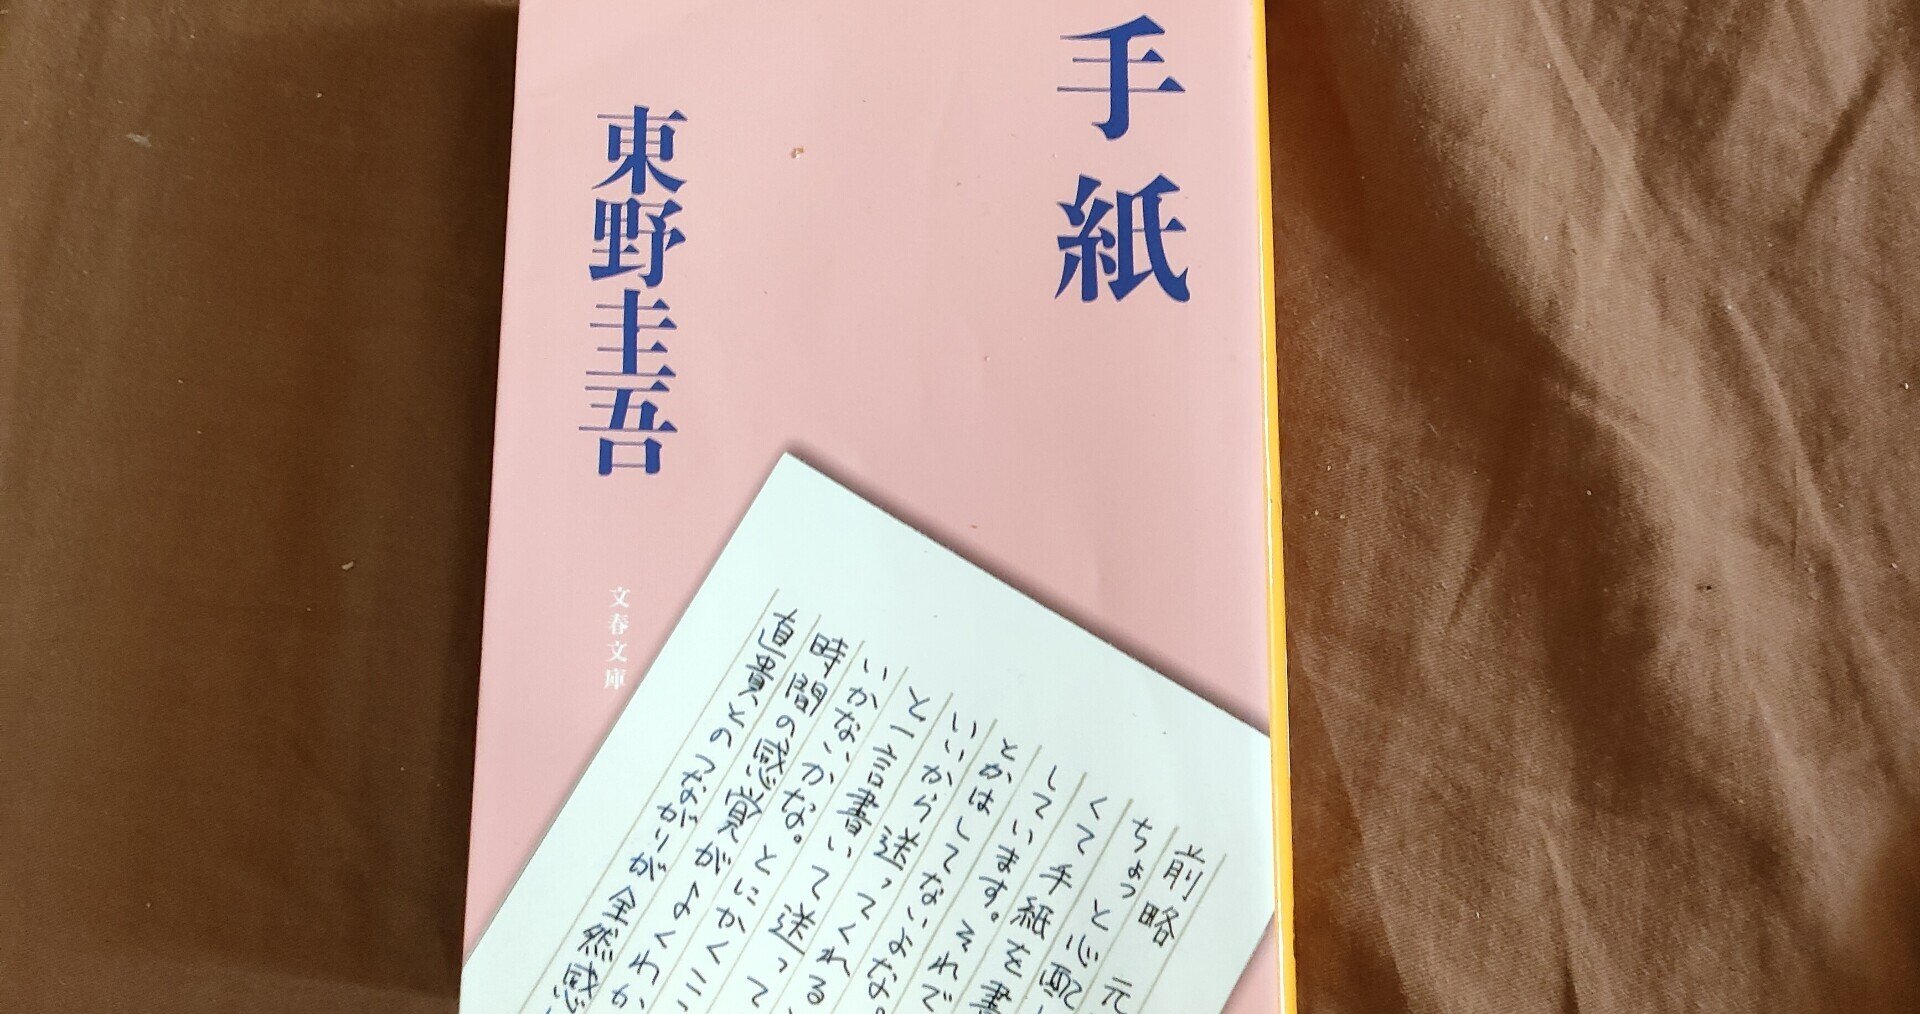 手紙
東野圭吾
文春文庫
前略 元
ちょっと心配
くて手紙を書
しています。それで
とかはしてないよな。
いいから送ってくれる
と一言書いて送って
いかないかな。とにかくここ
時間の感覚がよくわか
直貴とのつながりが全然感じ